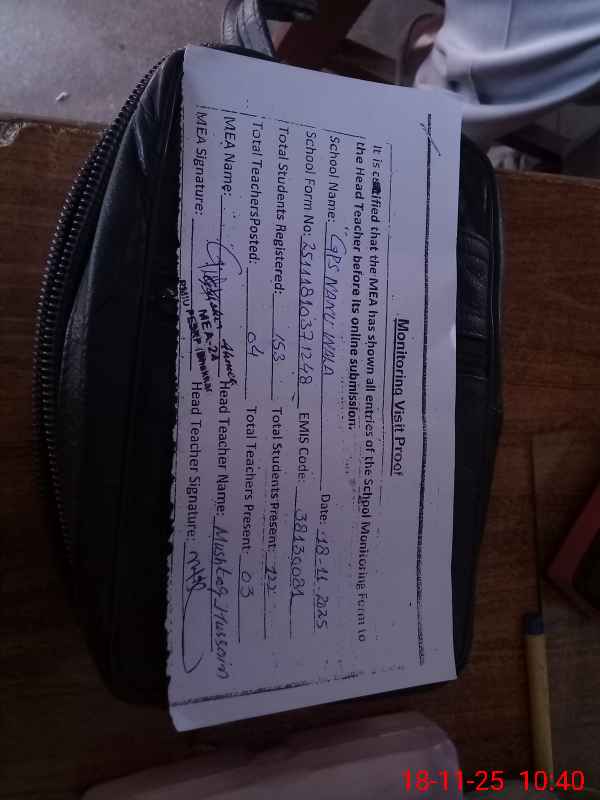 Monitoring Visit Proof
It is certified that the MEA has shown all entries of the School Monitoring Form to
the Head Teacher before its online submission.
School Name: GPS NANU WALA Date: 18-11-2025
School Form No: 25111810371248 EMIS Code: 38130081
Total Students Registered: 153 Total Students Present: 122
Total TeachersPosted: 04 Total Teachers Present: 03
MEA Name: Ahmed Head Teacher Name: Mushtaq Hussain
MEA Signature: Head Teacher Signature:
MEA-24
18-11-25 10:40